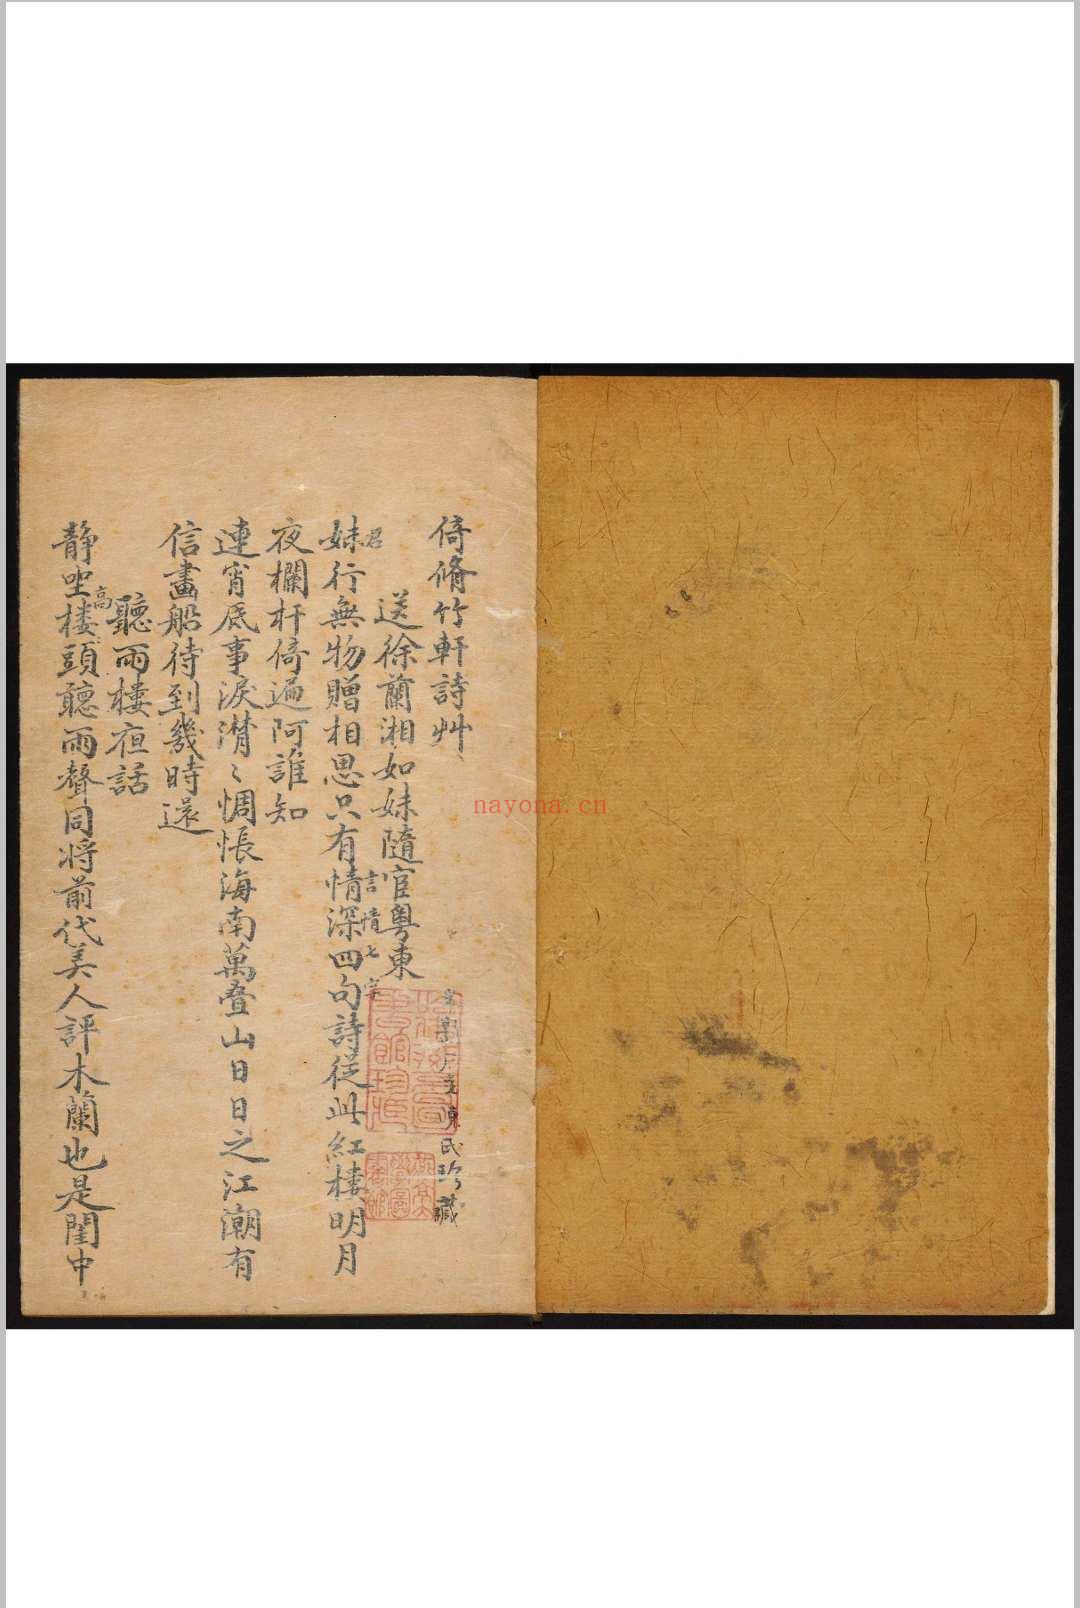 倚脩竹軒詩艸
長樂
陳氏珍藏
送徐蘭湘如妹隨宦粵東
君
言情七字
妹行無物贈相思只有情深四句詩從此紅樓明月
夜欄杆倚遍阿誰知
連宵底事淚潸〻惆悵海南萬疊山日日之江潮有
信畫船待到幾時還
聽雨樓夜話
高
静坐楼頭聽雨聲同將前代美人評木蘭也是閨中
nayona.cn